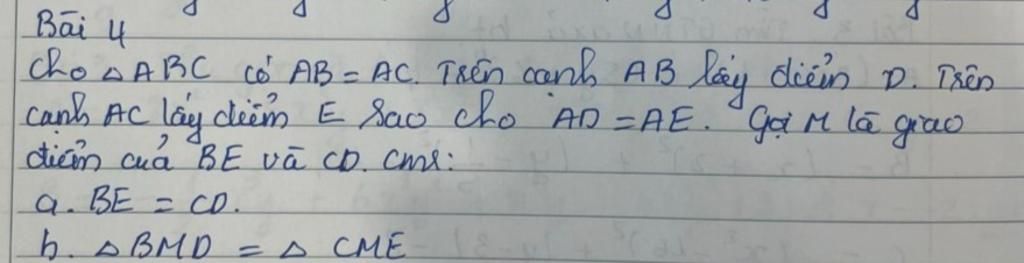 Bài 4
Cho △ABC có AB = AC. Trên cạnh AB lấy điểm D. Trên
cạnh AC lấy điểm E sao cho AD = AE. Gọi M là giao
điểm của BE và CD. Cmr:
a. BE = CD.
b. △BMD = △ CME